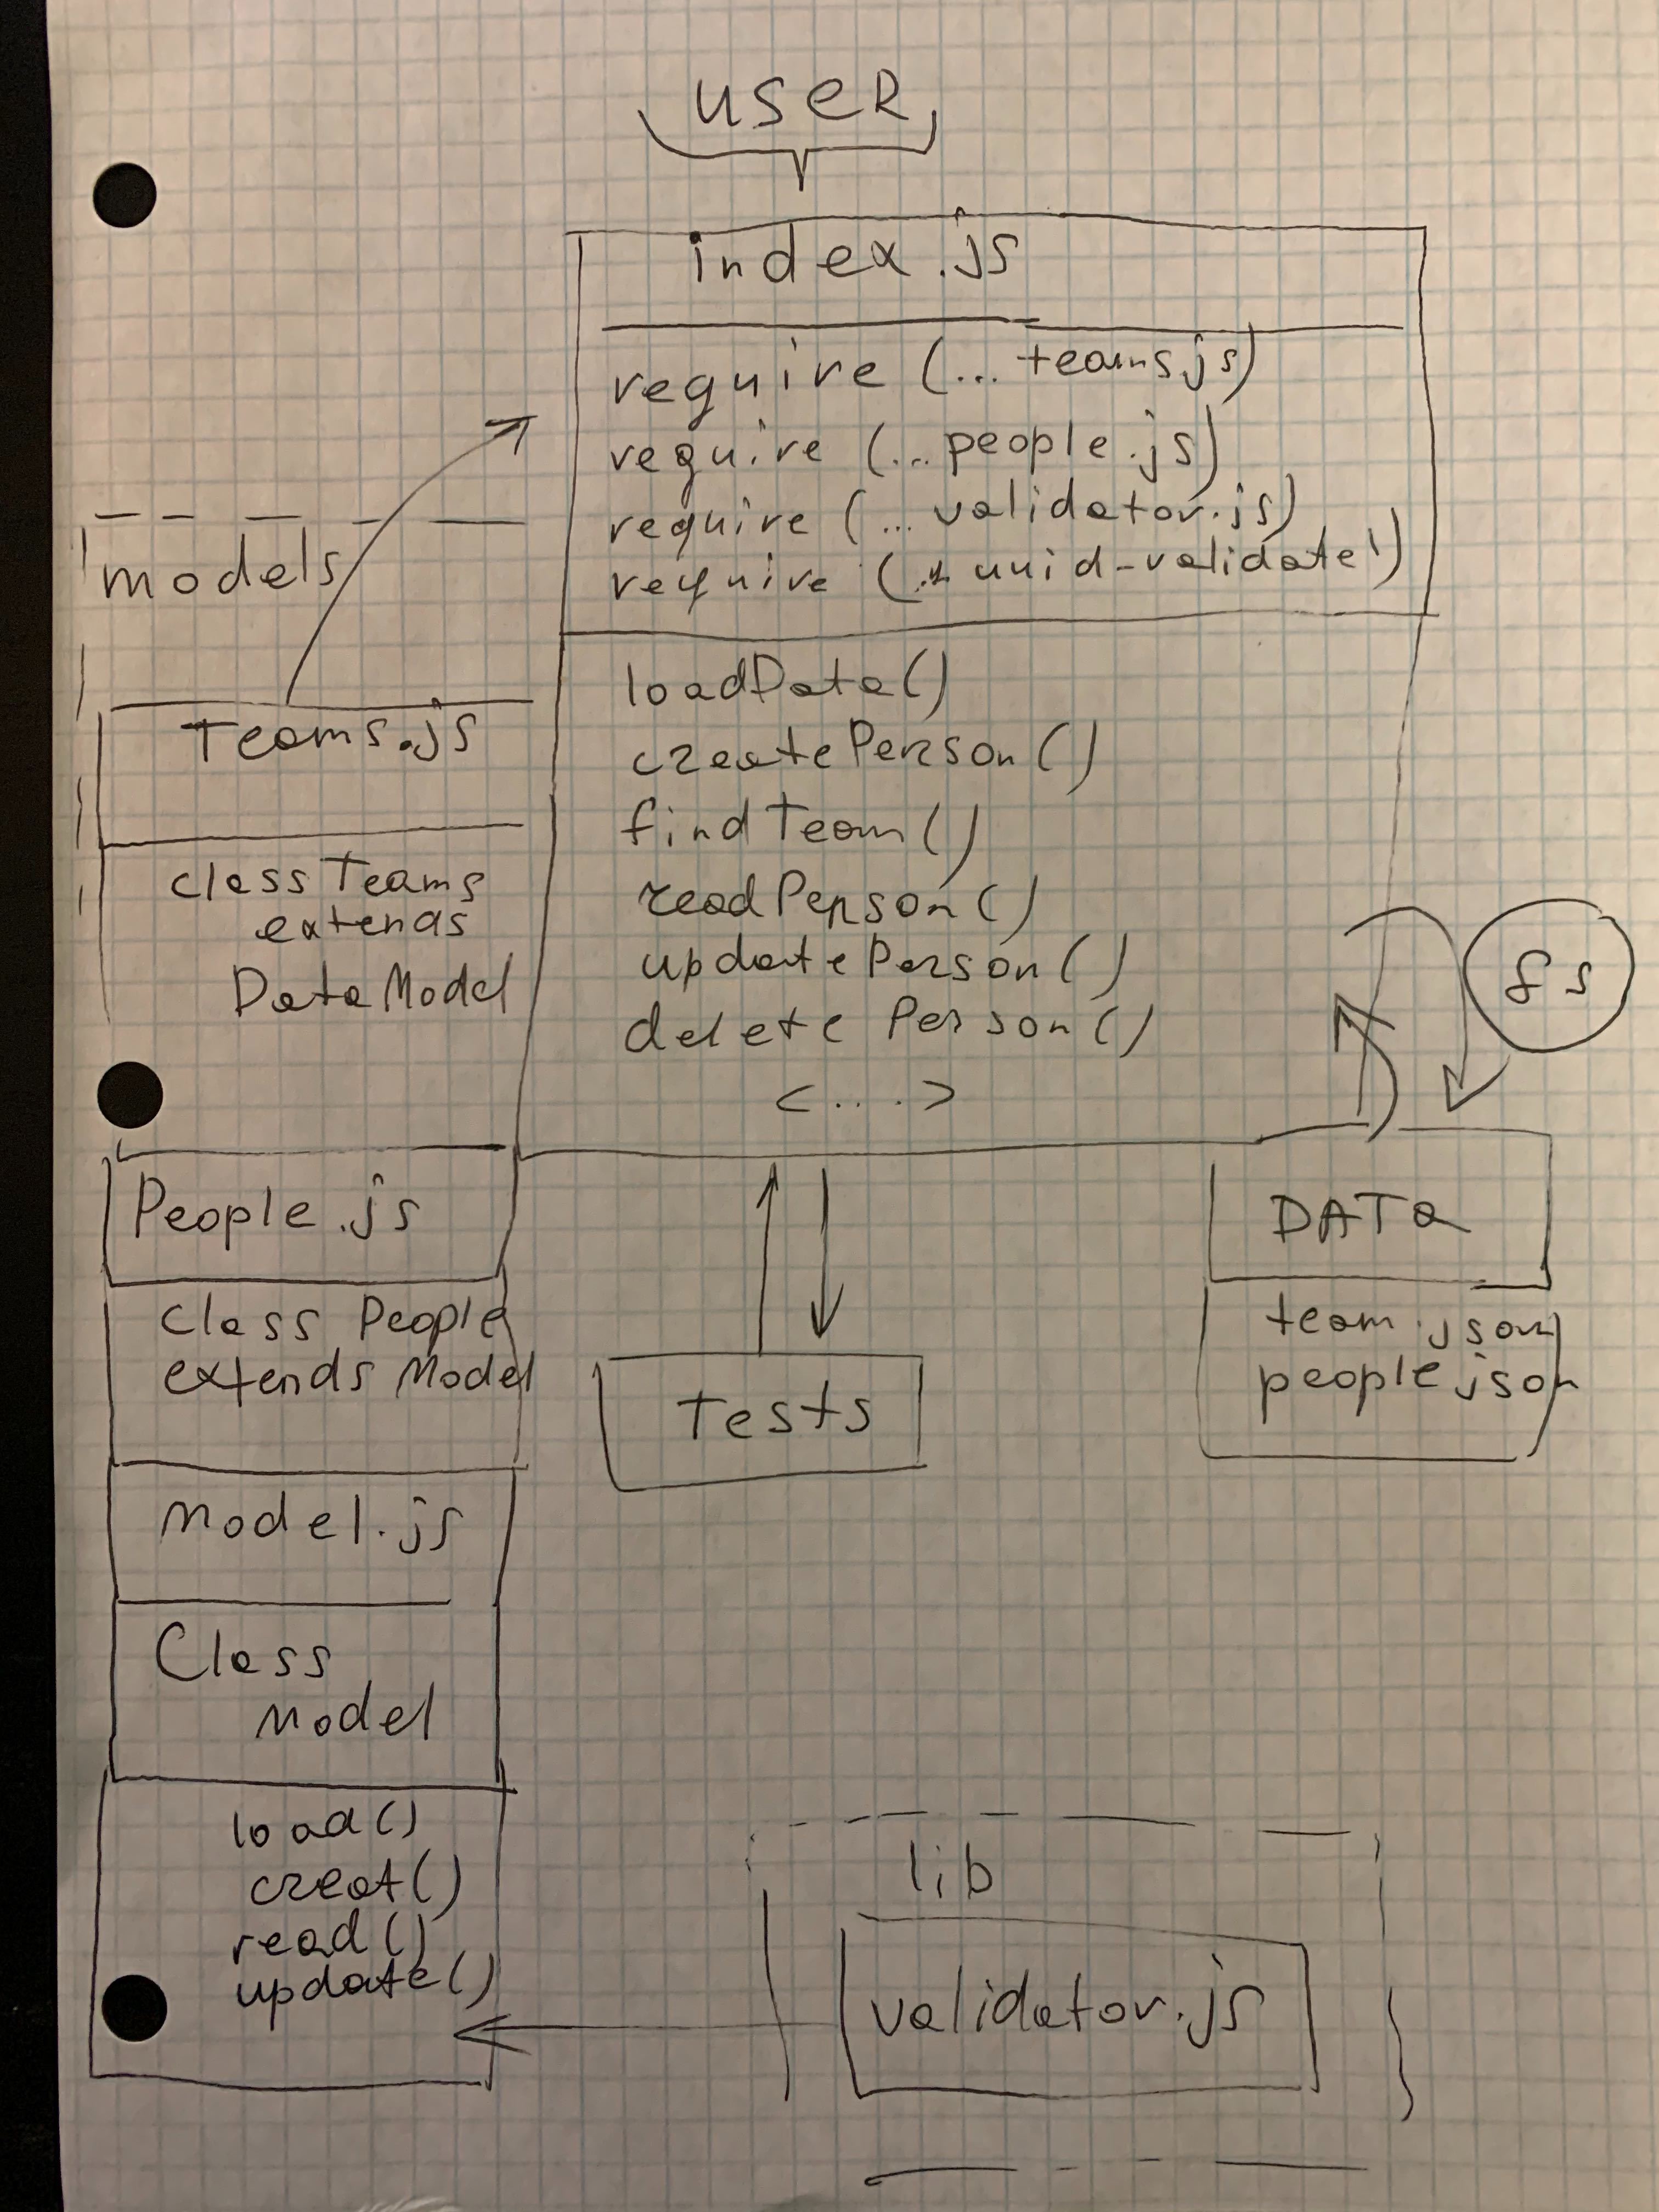 USER
index.js
require (... teams.js)
require (... people.js)
require (... validator.js)
require ( uuid-validate')
loadData()
createPerson()
findTeam()
readPerson()
updatePerson()
deletePerson()
<....>
models
Teams.js
class Teams
extends
DataModel
People.js
class People
extends Model
Model.js
Class
Model
load()
creat()
read()
update()
Tests
fs
DATa
team.json
people.json
lib
validator.js